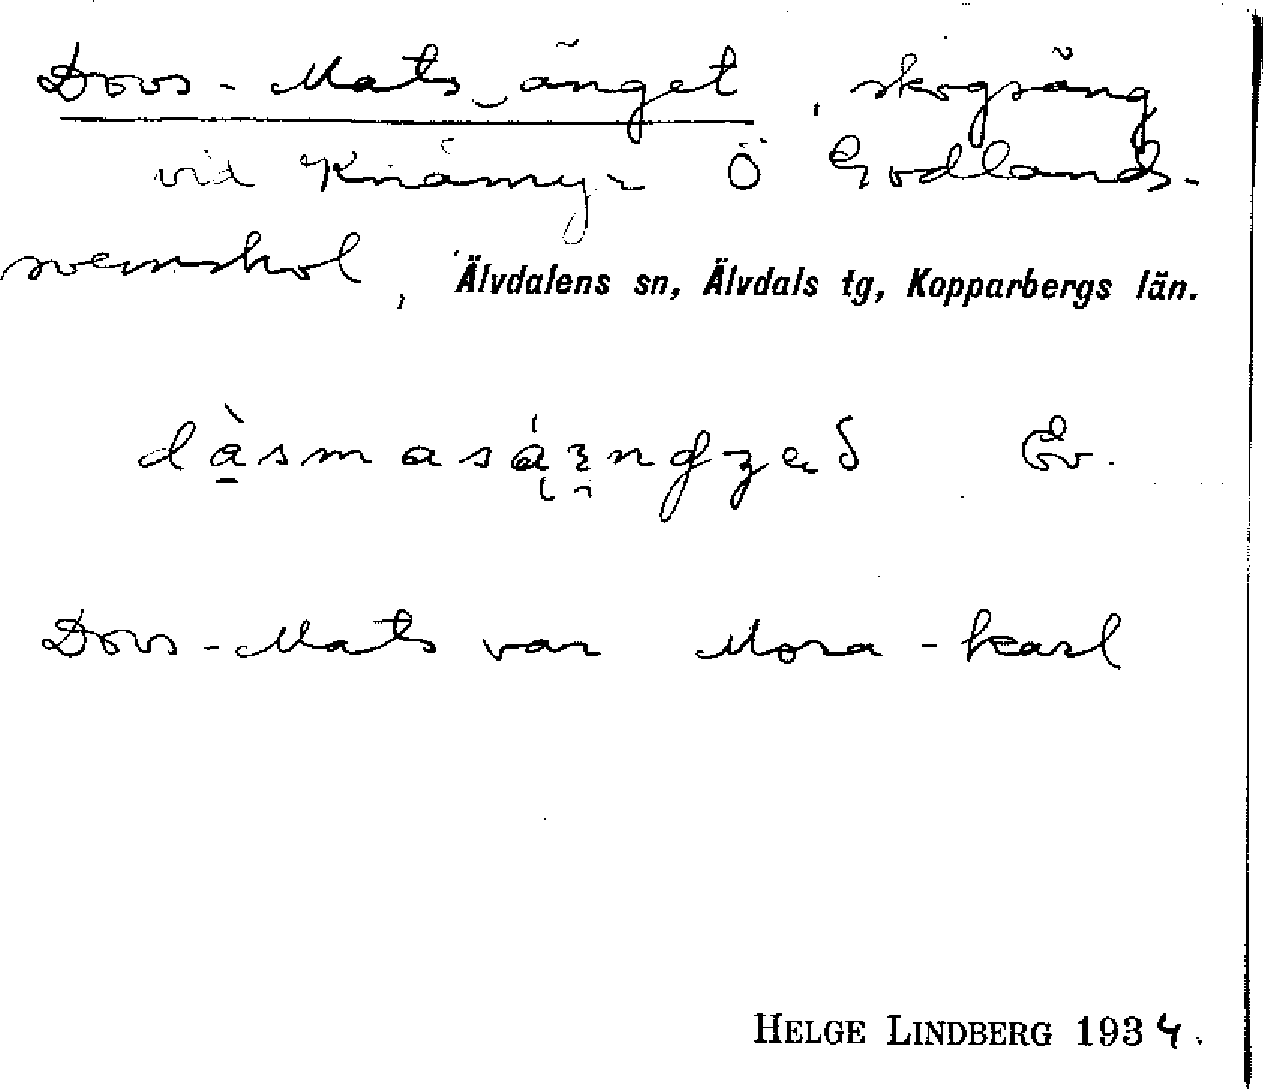 Dovs-Mats-änget, skogsäng
vid Knåmyr Ö Godlands-
svenskol, Älvdalens sn, Älvdals tg, Kopparbergs län.
Ev.
Dovs-Mats var Mora-karl
HELGE LINDBERG 1934.